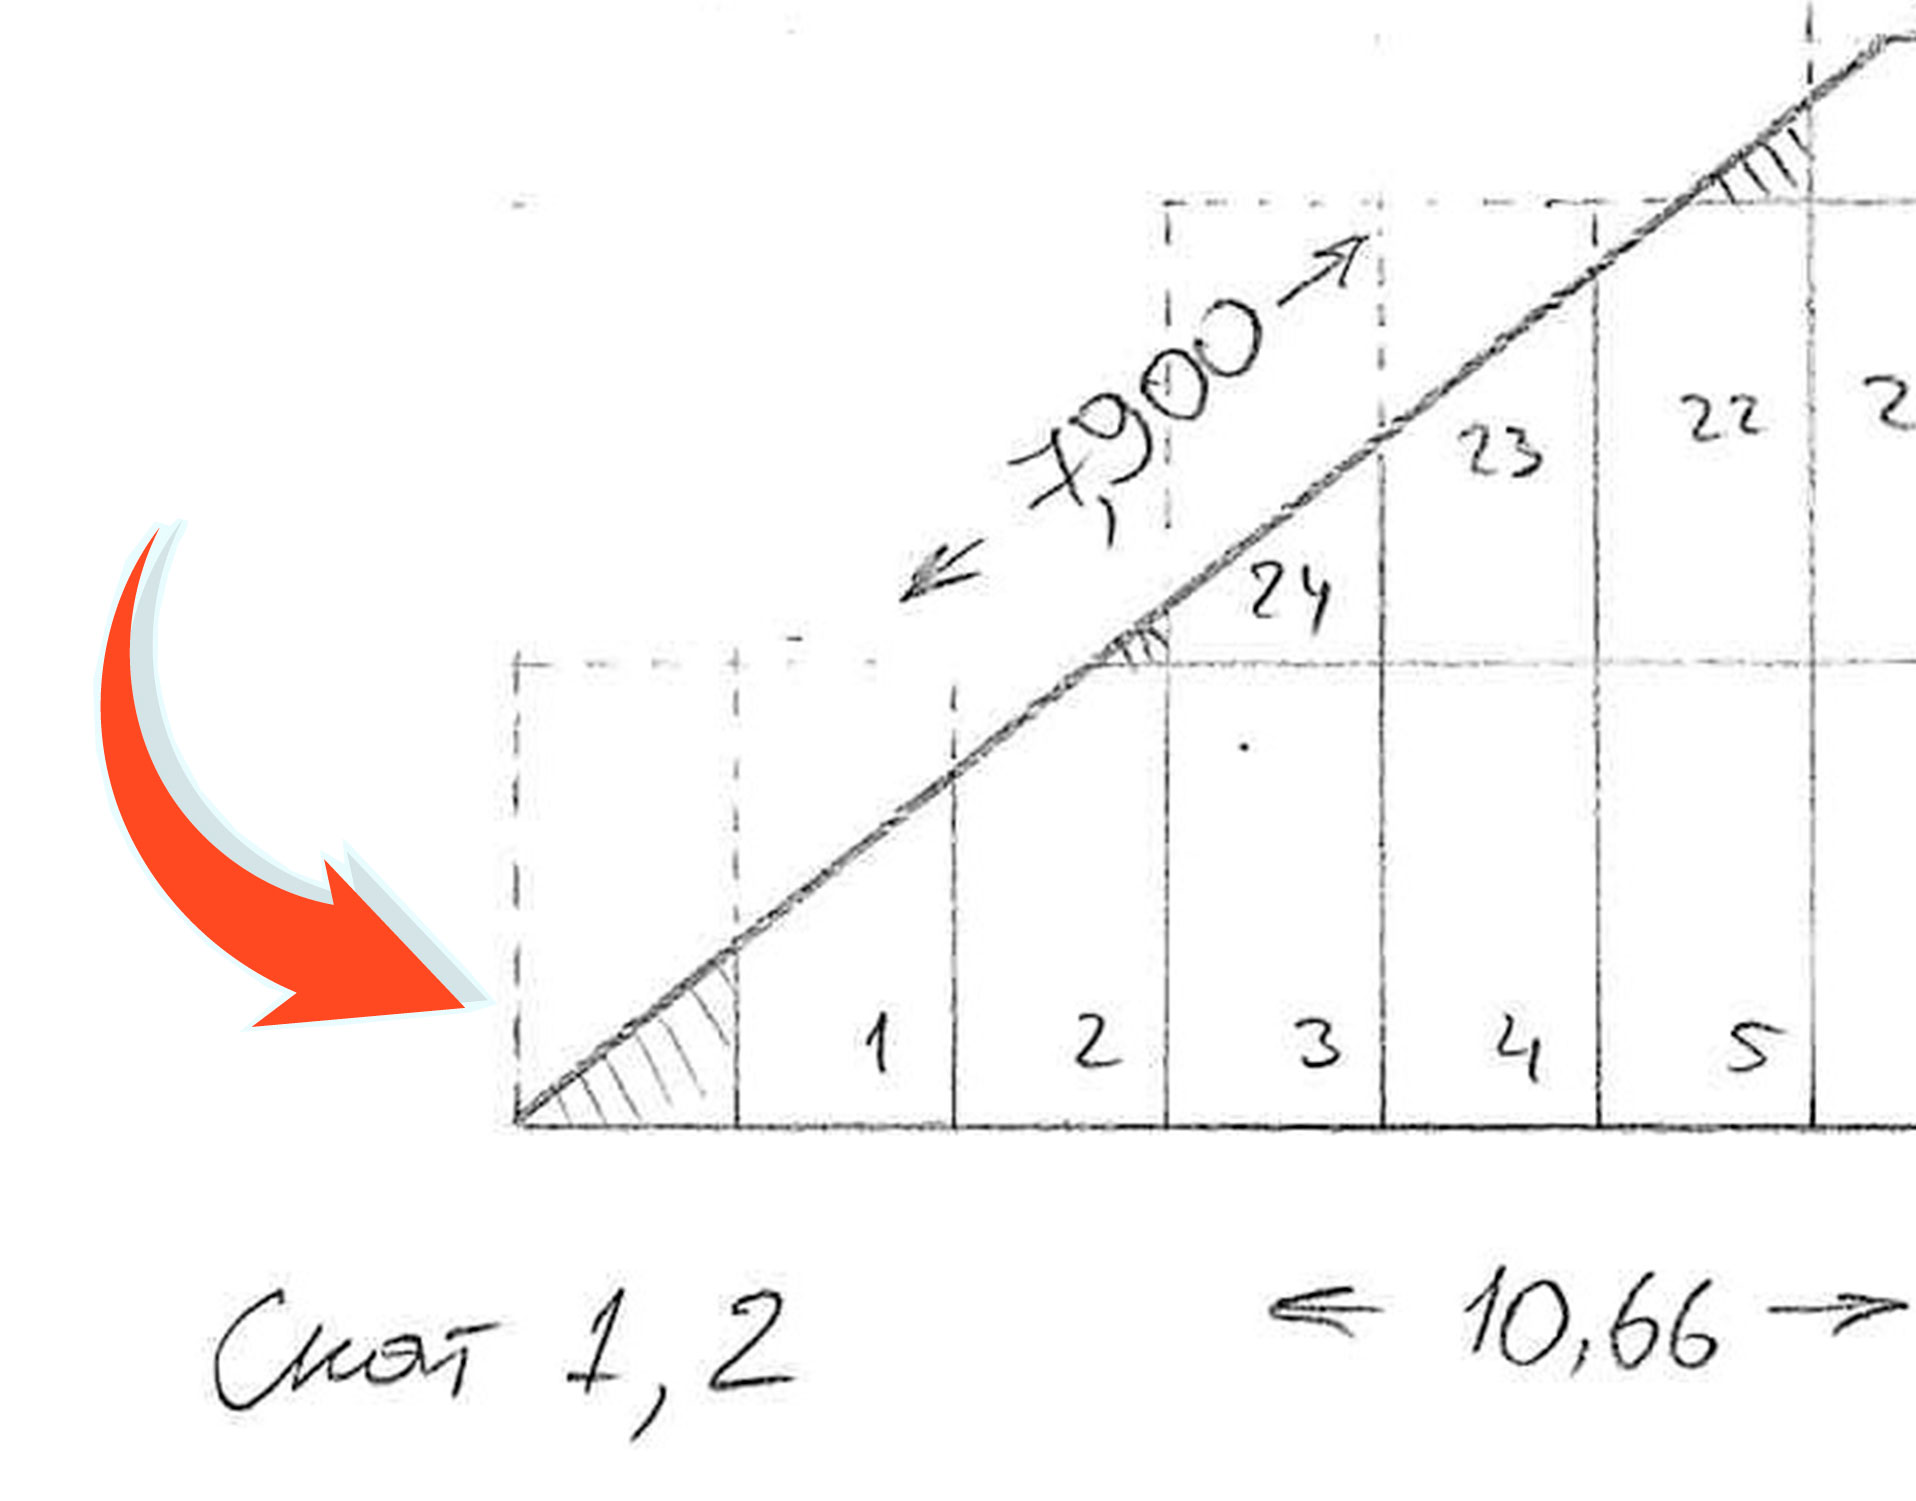 7,900
23 22 2
24
1 2 3 4 5
Скат 1,2
10,66